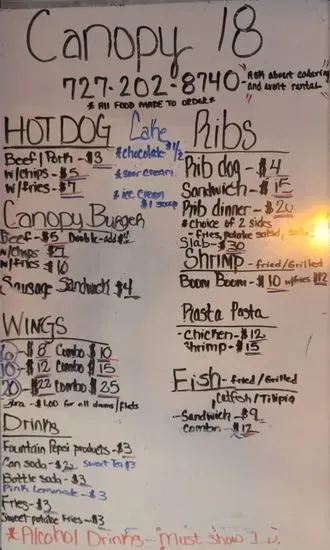 Canopy 18
727-202-8740
"Ask about catering
and event rental"
* All FOOD MADE TO ORDER*
HOT DOG
Beef/Pork - $3
w/chips - $5
w/fries - $7
Cake
*chocolate $1/2
*sour cream
*ice cream
$1 scoop
Canopy Burger
Beef - $5 Double-add $
w/chips $7
w/fries $10
Sausage Sandwich $4
WINGS
6 - $8 Combo $10
10 - $12 Combo $15
20 - $22 Combo $25
- $1.00 for all drums/flats
Drinks
Fountain Pepsi products - $3
Can soda - $2 Sweet Tea $3
Bottle soda - $3
Pink Lemonade - $3
Fries - $3
Sweet potatoe Fries - $3
Ribs
Rib dog - $4
Sandwich - $15
Rib dinner - $20
*choice of 2 sides
- fries, potatoe salad,
Slab - $30
Shrimp - fried/Grilled
Boom Boom - $10 w/fries $12
Rasta Pasta
- chicken - $12
Shrimp - $15
Fish - fried/Grilled
Catfish/Tilipia
- Sandwich - $9
Combo - $12
*Alcohol Drinks - Must show I.D.